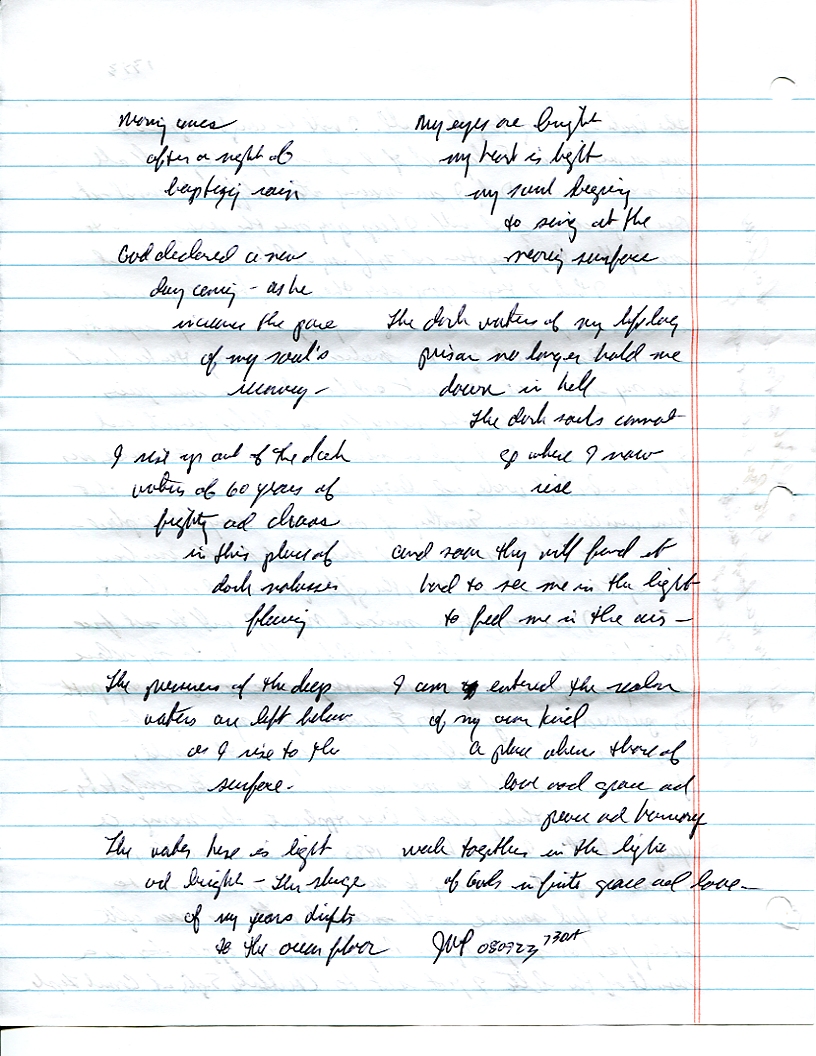 Morning comes
after a night of
baptizing rain
God declared a new
day coming - as he
increase the pace
of my soul's
recovery -
I rise up out of the dark
waters of 60 years of
fighting and chaos
in this place of
dark molasses
flowing
The pressures of the deep
waters are left below
as I rise to the
surface -
The water here is light
and bright - The sludge
of my years drifts
to the ocean floor
My eyes are bright
my heart is light
my soul begins
to sing at the
nearing surface
The dark waters of my lifelong
prison no longer hold me
down in hell
The dark souls cannot
go where I now
rise
and soon they will find it
hard to see me in the light
to feel me in the air -
I am entered the realm
of my own kind
a place where those of
love and grace and
peace and harmony
walk together in the light
of God's infinite grace and love -
JWP 080723 730A